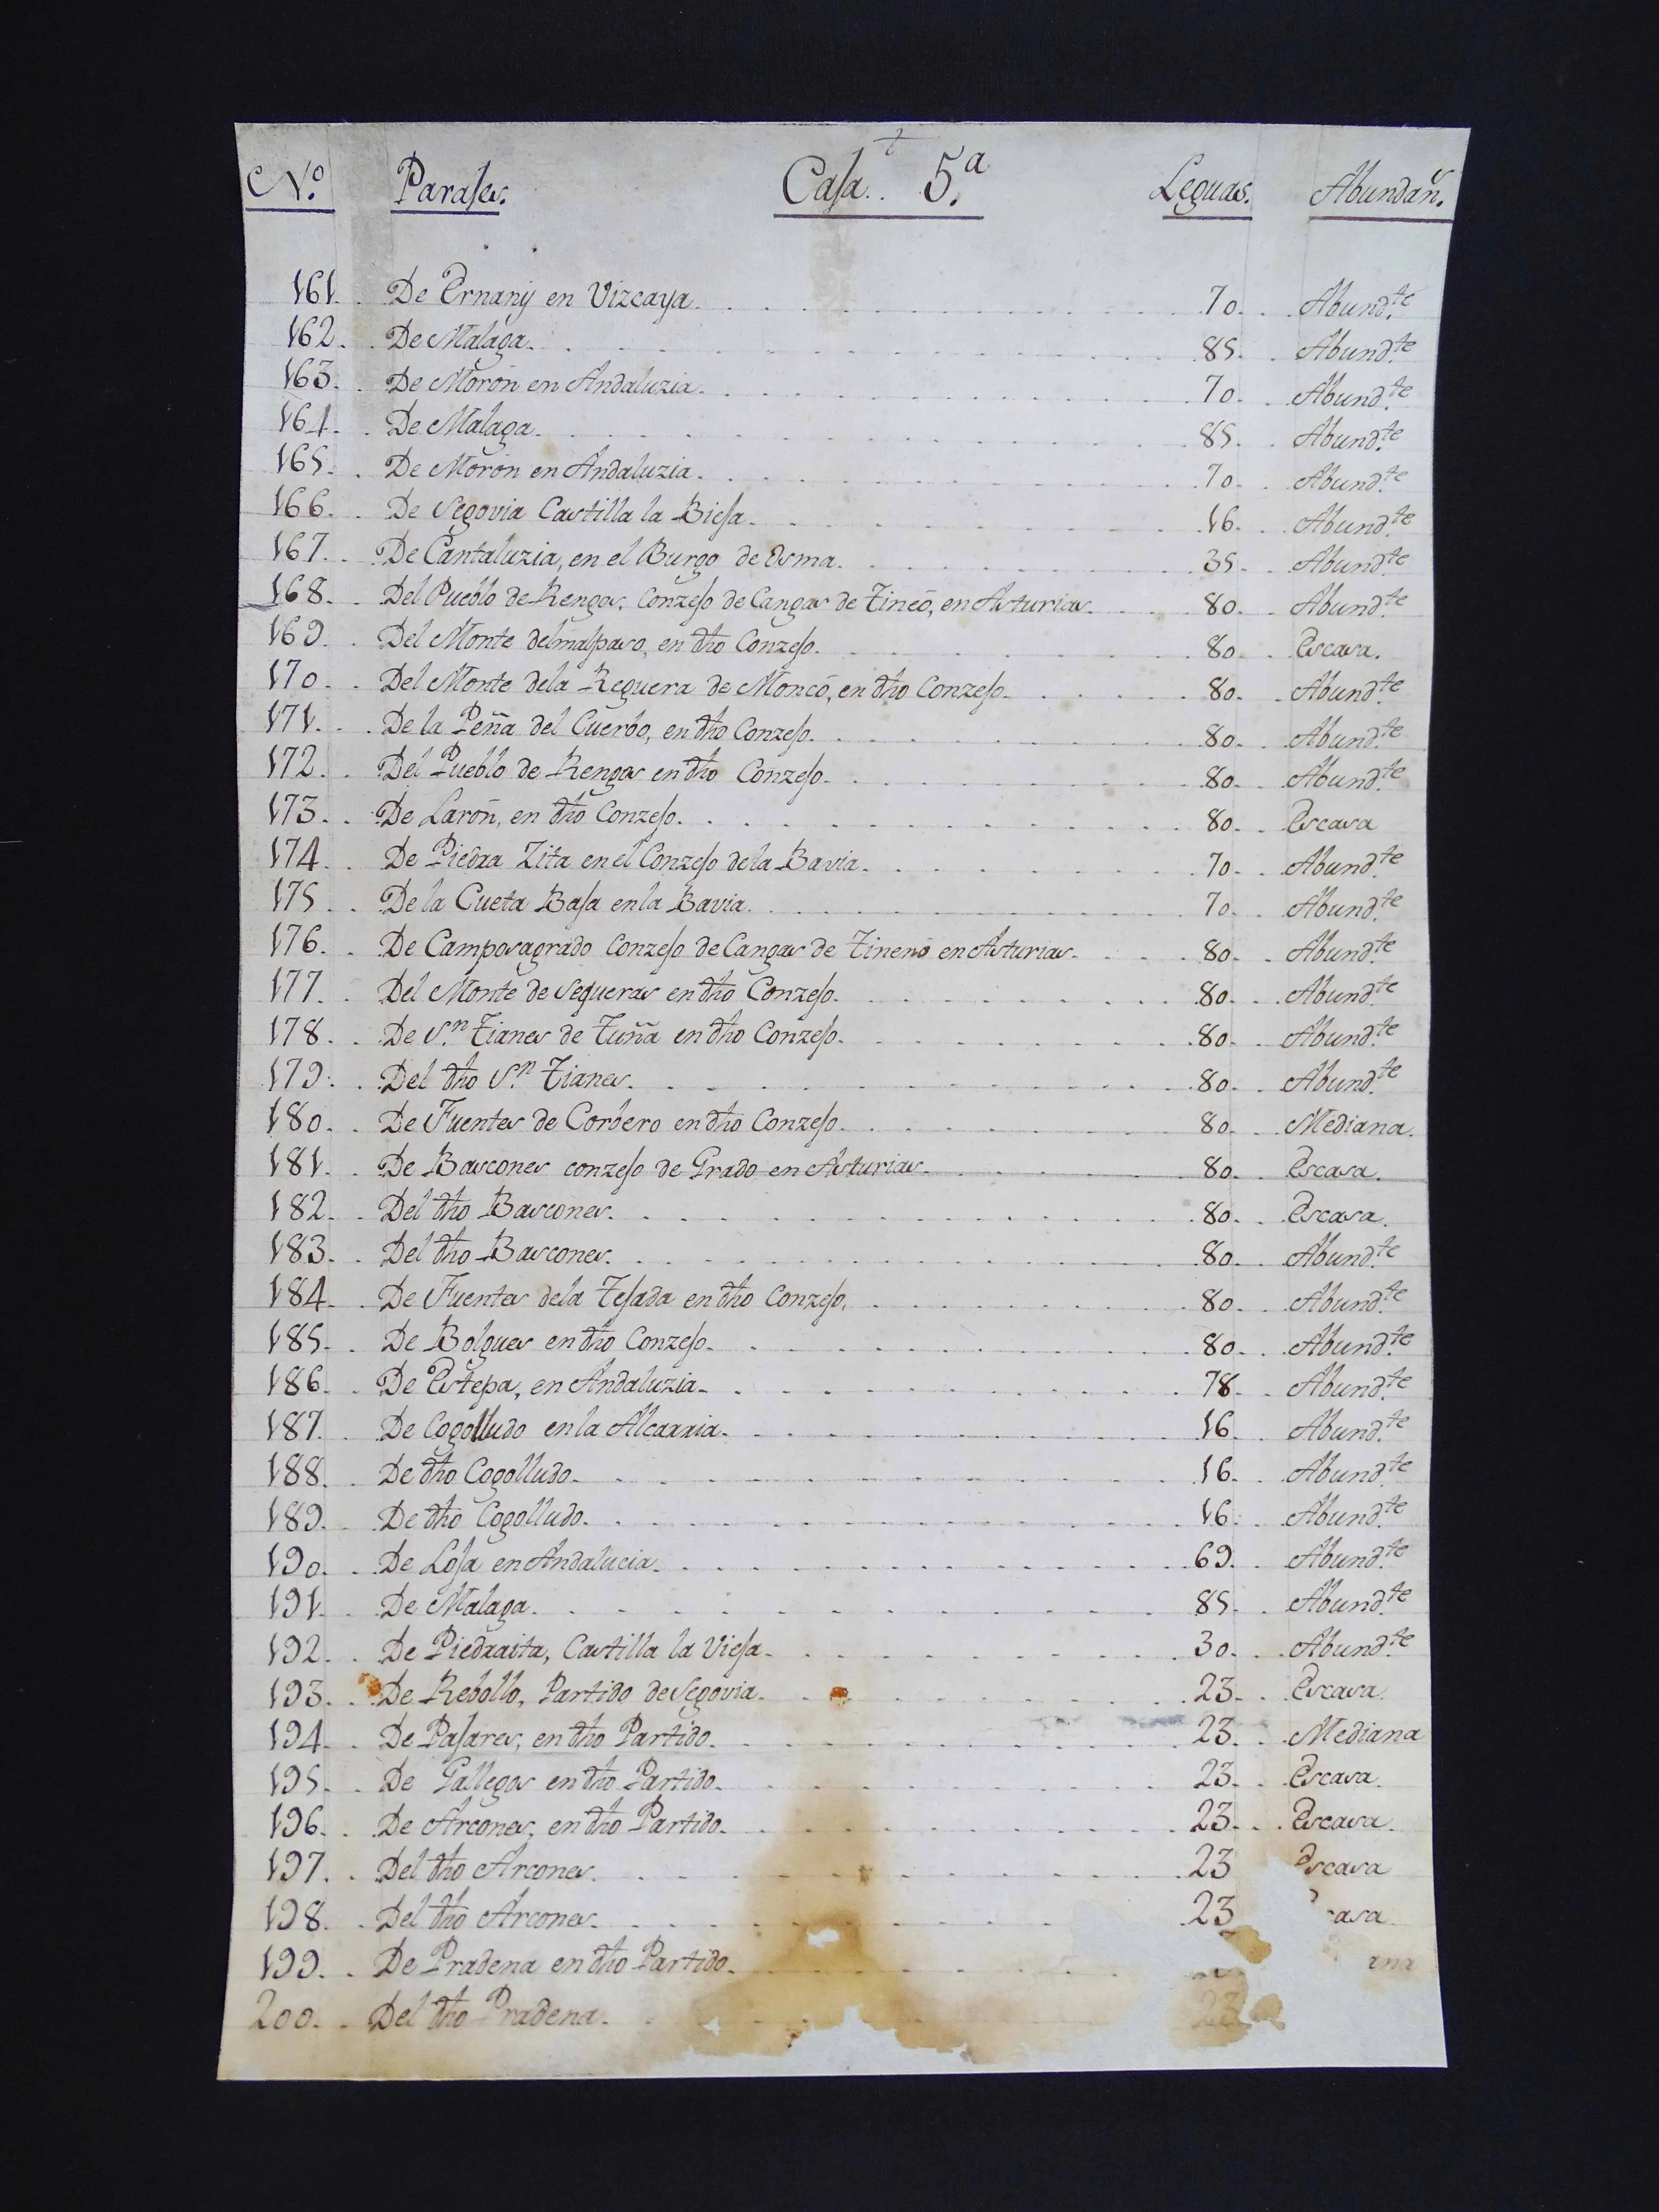 N.º Parajes. Caja.. 5.ª Leguas. Abundan.
161. De Ernanÿ en Vizcaya. 70. Abund.te
162. De Malaga. 85. Abund.te
163. De Morón en Andaluzia. 70. Abund.te
164. De Malaga. 85. Abund.te
165. De Morón en Andaluzia. 70. Abund.te
166. De Segovia Castilla la Bieja. 16. Abund.te
167. De Cantaluzia, en el Burgo de Osma. 35. Abund.te
168. Del Pueblo de Rengos, Conzejo de Cangas de Tineó, en Asturias. 80. Abund.te
169. Del Monte delmalpaso, en dho Conzejo. 80. Escasa.
170. Del Monte dela Reguera de Moncó, en dho Conzejo. 80. Abund.te
171. De la Peña del Cuerbo, en dho Conzejo. 80. Abund.te
172. Del Pueblo de Rengos en dho Conzejo. 80. Abund.te
173. De Larón, en dho Conzejo. 80. Escasa
174. De Piedra Zita en el Conzejo de la Bavia. 70. Abund.te
175. De la Cueta Baja en la Bavia. 70. Abund.te
176. De Camposagrado Conzejo de Cangas de Tineno en Asturias. 80. Abund.te
177. Del Monte de Sequeras en dho Conzejo. 80. Abund.te
178. De S.n Tianes de Tuña en dho Conzejo. 80. Abund.te
179. Del dho S.n Tianes. 80. Abund.te
180. De Fuentes de Corbero en dho Conzejo. 80. Mediana.
181. De Bascones conzejo de Grado en Asturias. 80. Escasa.
182. Del dho Bascones. 80. Escasa.
183. Del dho Bascones. 80. Abund.te
184. De Fuentes dela Tejada en dho Conzejo. 80. Abund.te
185. De Bolgues en dho Conzejo. 80. Abund.te
186. De Estepa, en Andaluzia. 78. Abund.te
187. De Cogolludo en la Alcarria. 16. Abund.te
188. De dho Cogolludo. 16. Abund.te
189. De dho Cogolludo. 16. Abund.te
190. De Loja en Andalucia. 69. Abund.te
191. De Malaga. 85. Abund.te
192. De Piedraita, Castilla la Vieja. 30. Abund.te
193. De Rebollo, Partido de Segovia. 23. Escasa.
194. De Pajares, en dho Partido. 23. Mediana
195. De Gallegos en dho Partido. 23. Escasa.
196. De Arcones, en dho Partido. 23. Escasa.
197. Del dho Arcones. 23 Escasa
198. Del dho Arcones. 23 casa.
199. De Pradena en dho Partido. ana
200. Del dho Pradena. 23